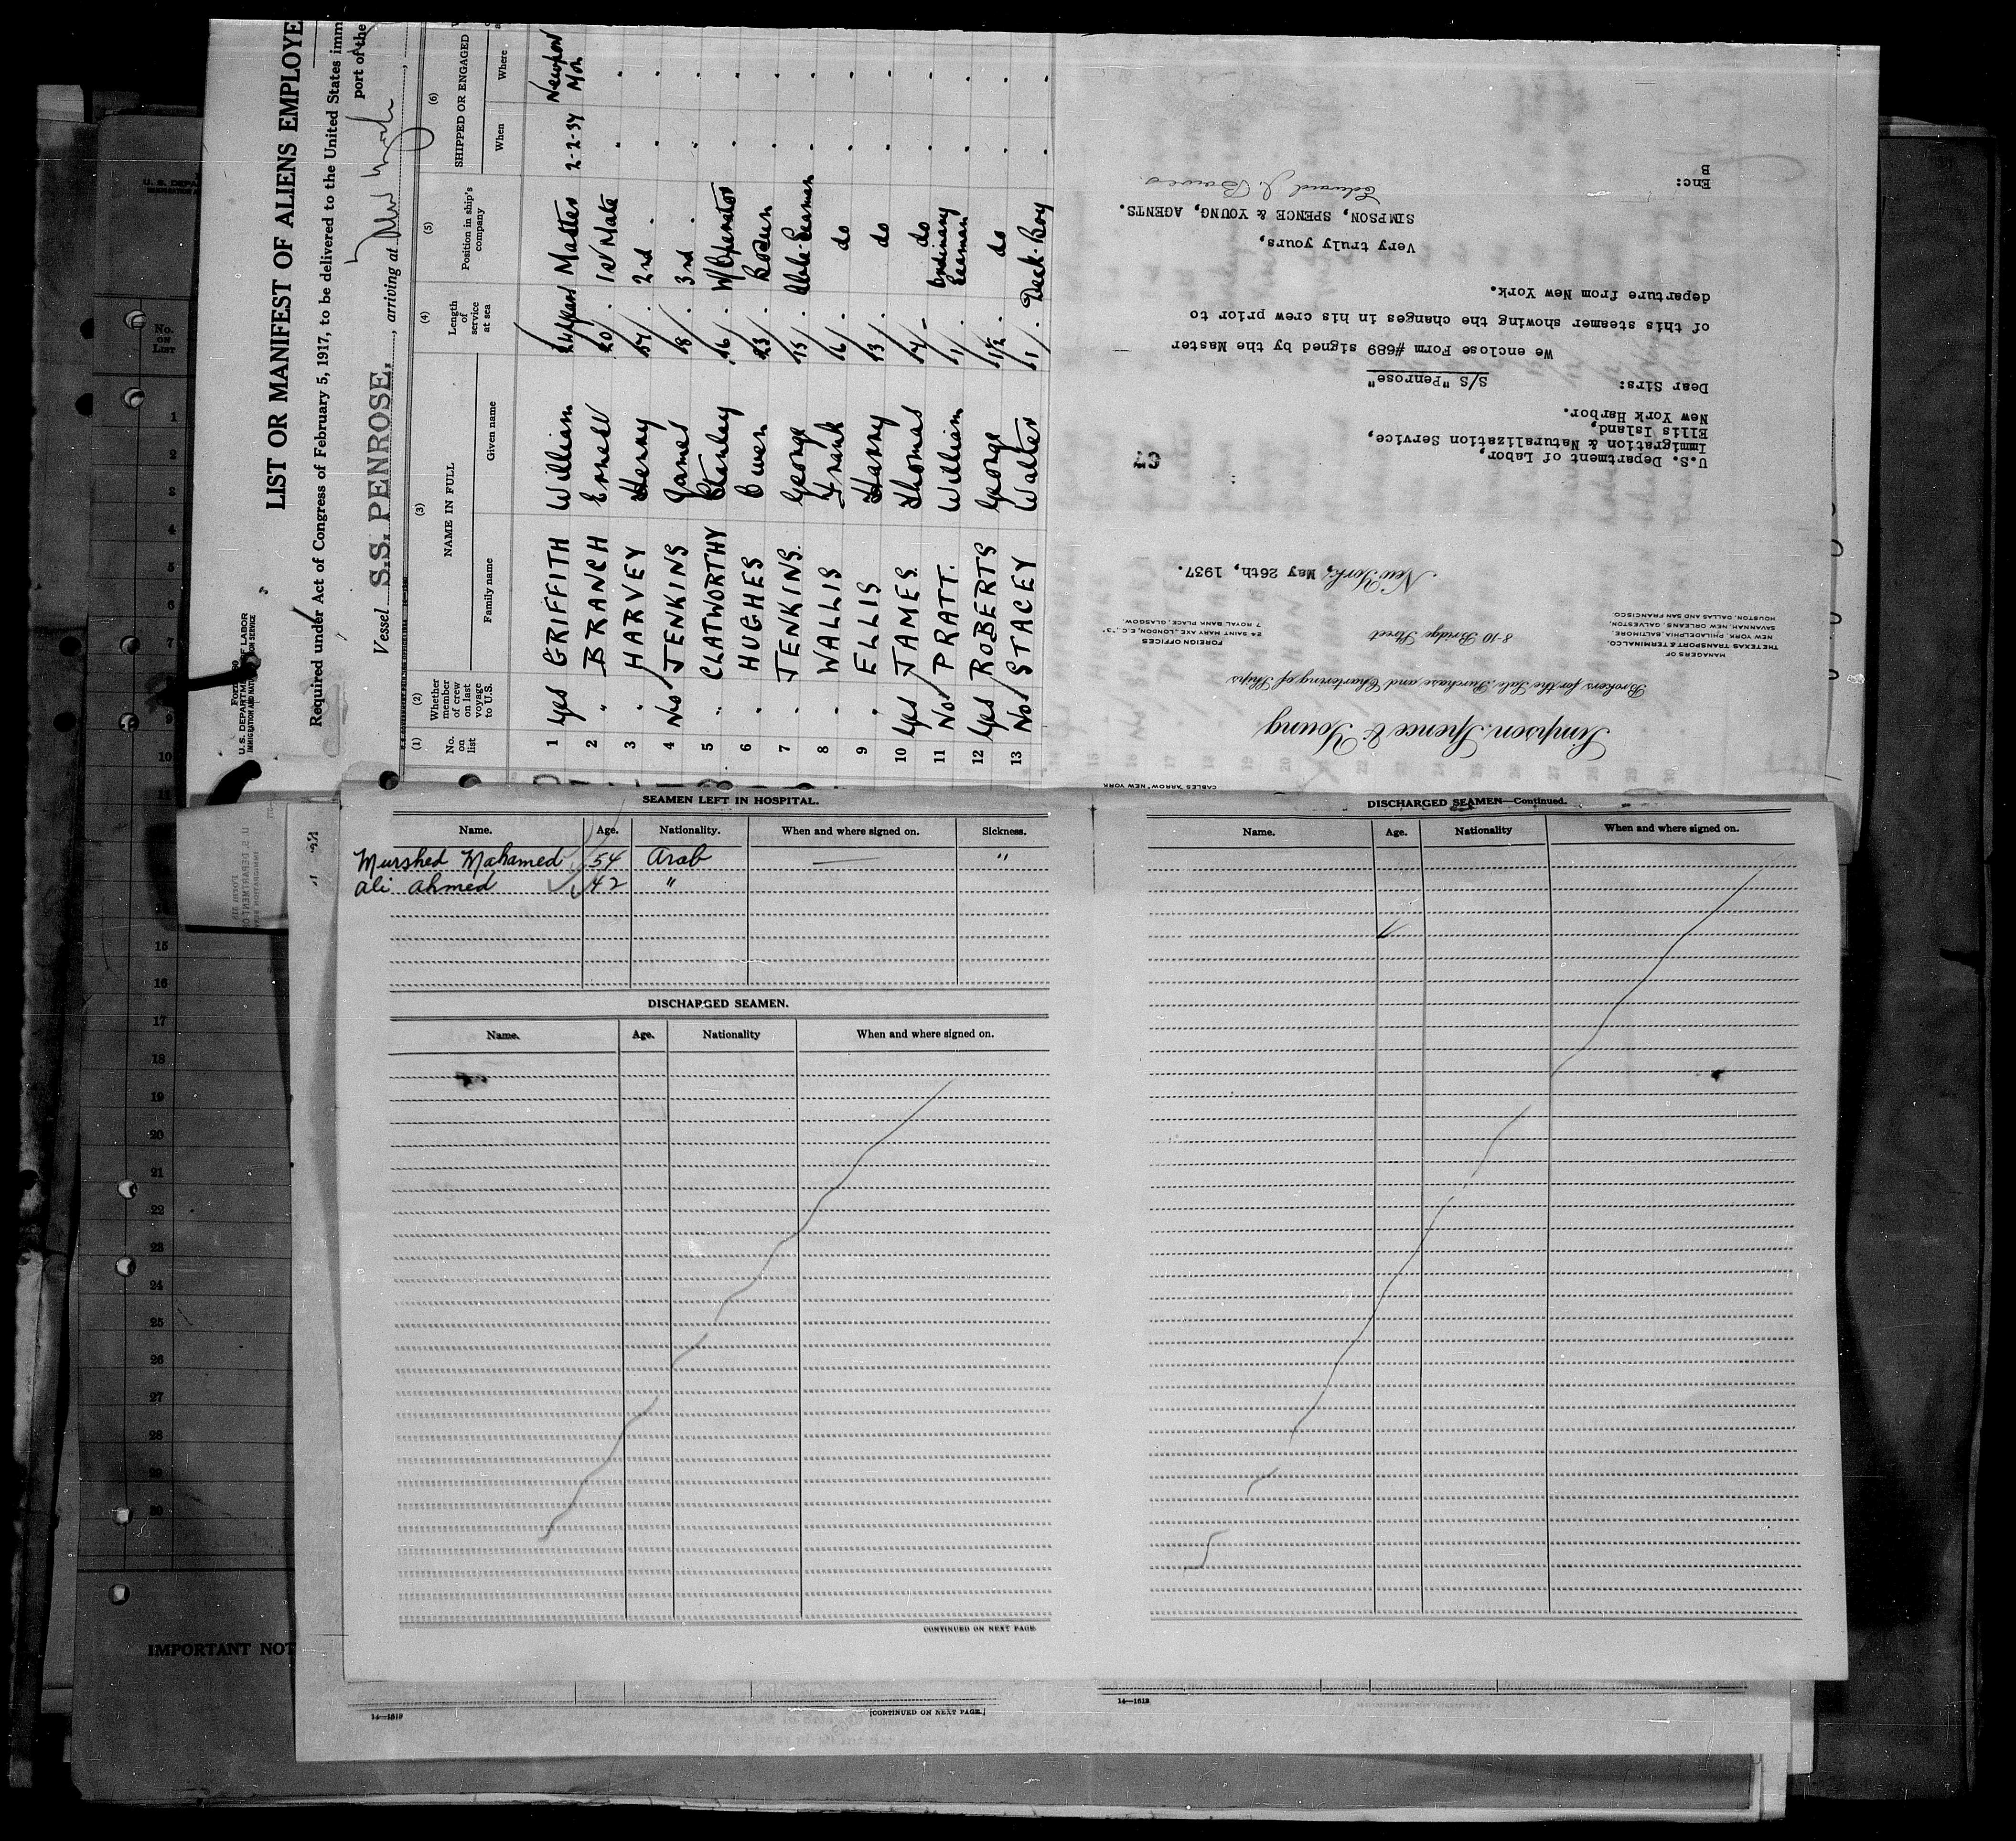 LIST OR MANIFEST OF ALIENS EMPLOYE
Required under Act of Congress of February 5, 1917, to be delivered to the United States imm
port of the
Vessel S.S. PENROSE., arriving at New York
U.S. DEPARTMENT OF LABOR
(1) (2) (3) (4) (5) (6)
No. on list
Whether member of crew on last voyage to U.S.
NAME IN FULL
Family name Given name
Length of service at sea
Position in ship's company
SHIPPED OR ENGAGED
When Where
1 Yes GRIFFITH William 24 years Master 2-2-37 Newport Mon
2 " BRANCH Ernest 20 " 1st Mate " "
3 " HARVEY Henry " 2nd " " "
4 No JENKINS James 18 " 3rd " " "
5 " CLATWORTHY Stanley 16 " W/Operator " "
6 " HUGHES Owen 23 " Bosun " "
7 " JENKINS. George 15 " Able-Seaman " "
8 " WALLIS Frank 16 " do " "
9 " ELLIS Harry 13 " do " "
10 Yes JAMES. Thomas do " "
11 No PRATT. William 1 " Ordinary Seaman " "
12 Yes ROBERTS George 1½ " do " "
13 No STACEY Walter 1 " Deck-Boy " "
Simpson, Spence & Young
Brokers for the Sale, Purchase and Chartering of Ships
MANAGERS OF
THE TEXAS TRANSPORT & TERMINAL CO.
NEW YORK, PHILADELPHIA, BALTIMORE,
SAVANNAH, NEW ORLEANS, GALVESTON,
HOUSTON, DALLAS AND SAN FRANCISCO.
8-10 Bridge Street
FOREIGN OFFICES
24 SAINT MARY AXE, LONDON, E.C., "3".
7 ROYAL BANK PLACE, GLASGOW.
New York, May 26th, 1937.
U.S. Department of Labor,
Immigration & Naturalization Service,
Ellis Island,
New York Harbor.
Dear Sirs:
S/S "Penrose"
We enclose Form #689 signed by the Master
of this steamer showing the changes in his crew prior to
departure from New York.
Very truly yours,
SIMPSON, SPENCE & YOUNG, AGENTS.
Enc:
B
SEAMEN LEFT IN HOSPITAL.
Name. Age. Nationality. When and where signed on. Sickness.
Murshed Mohamed 54 Arab — "
Ali Ahmed 42 "
DISCHARGED SEAMEN.
Name. Age. Nationality When and where signed on.
CONTINUED ON NEXT PAGE.
DISCHARGED SEAMEN—Continued.
Name. Age. Nationality When and where signed on.
14—1613
[CONTINUED ON NEXT PAGE.]
14—1613
No. ON LIST
1
2
3
4
5
6
7
9
10
11
15
16
17
18
19
20
21
22
23
24
25
26
27
28
29
30
IMPORTANT NOT